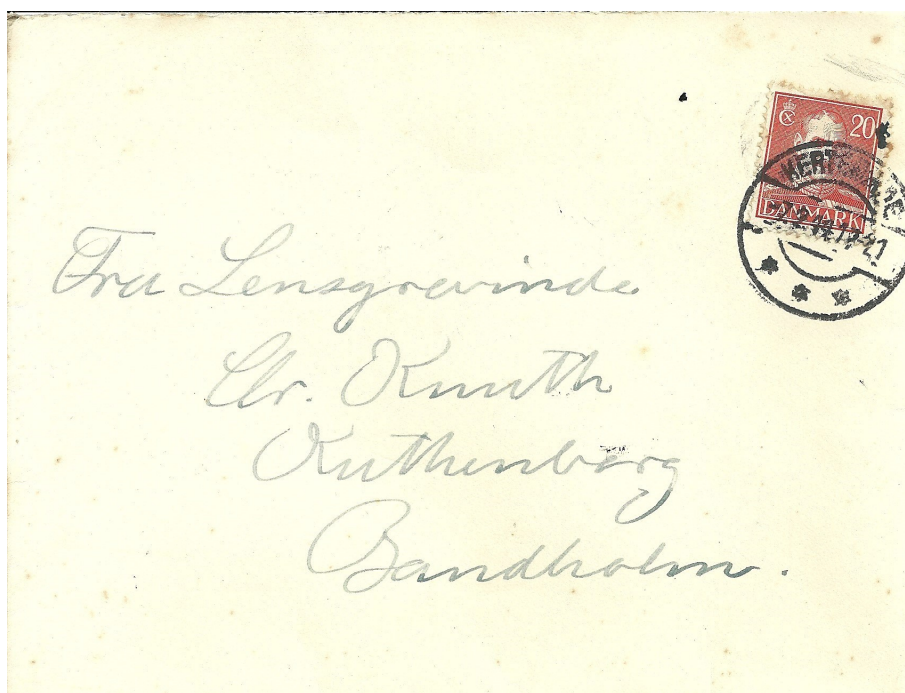 20
DANMARK
Fru Lensgrevinde
Chr. Knuth
Kuthenborg
Bandholm.